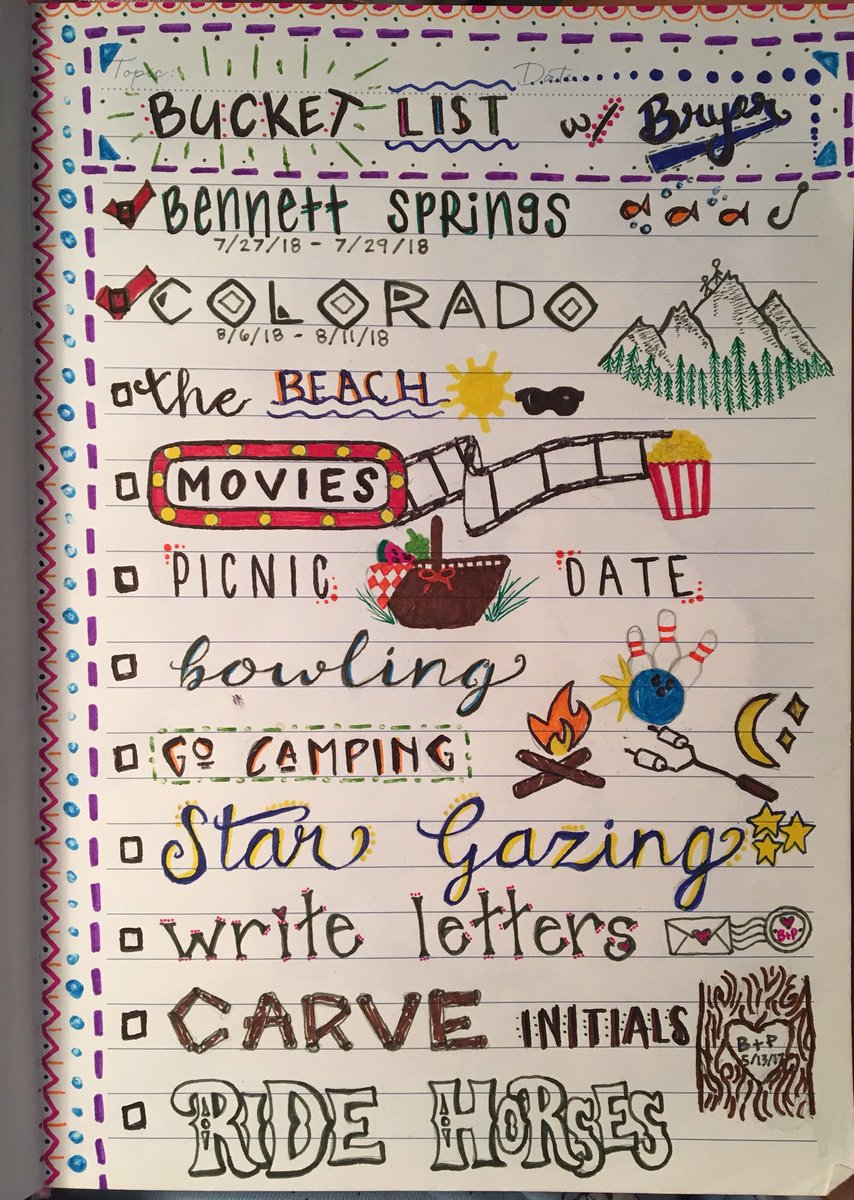 Topic: Date:
BUCKET LIST w/ Bryer
Bennett Springs
7/27/18 - 7/29/18
COLORADO
8/6/18 - 8/11/18
the BEACH
MOVIES
PICNIC DATE
bowling
GO CAMPING
Star Gazing
write letters
B+P
CARVE INITIALS
B+P
5/13/17
RIDE HORSES